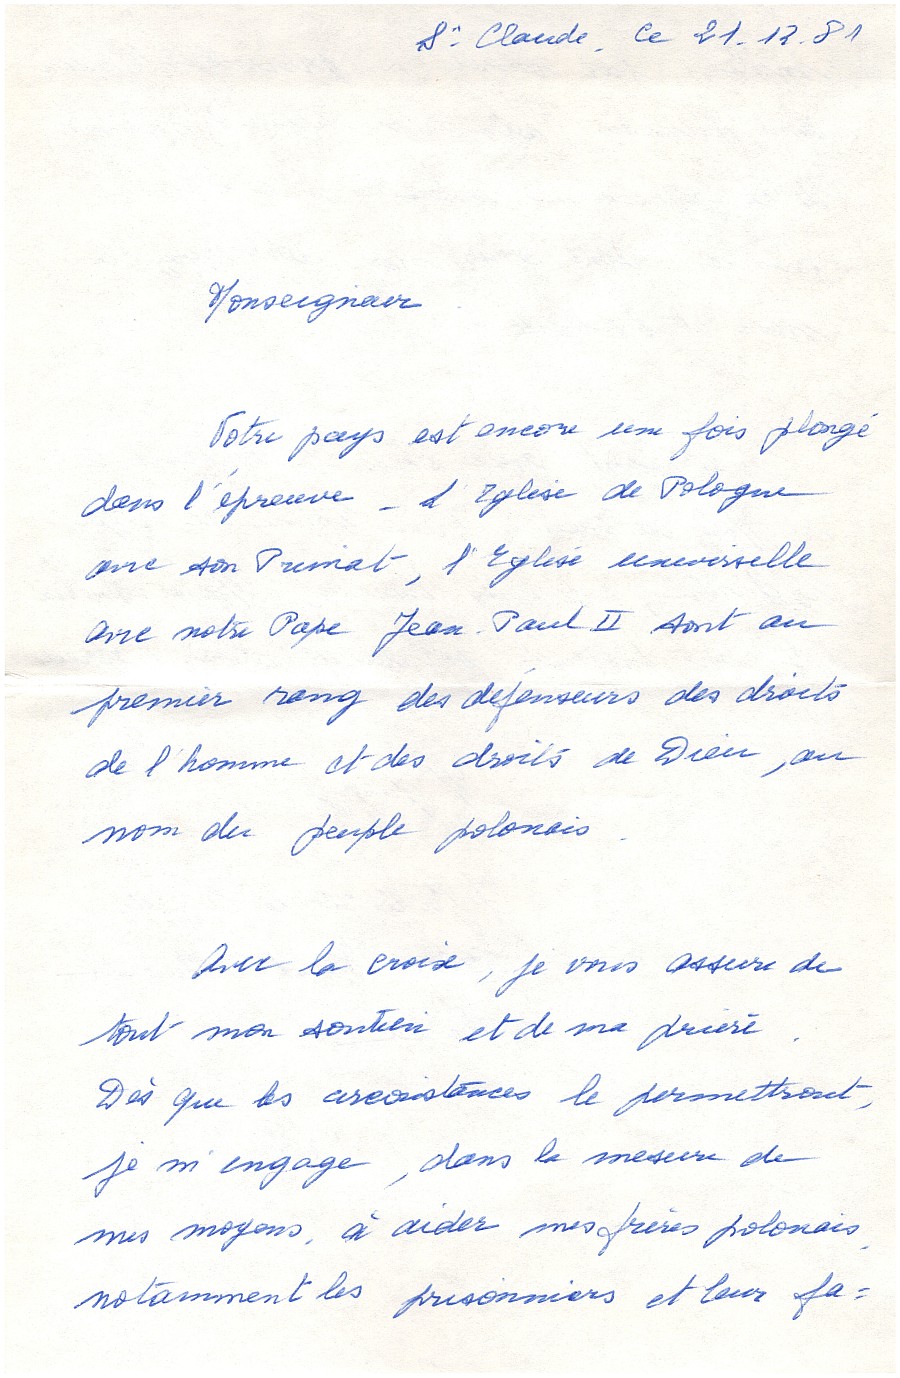 St Claude, ce 21.12.81
Monseigneur
Votre pays est encore une fois plongé
dans l'épreuve - L'Eglise de Pologne
avec son Primat, l'Eglise universelle
avec notre Pape Jean-Paul II sont au
premier rang des défenseurs des droits
de l'homme et des droits de Dieu, au
nom du peuple polonais.
Avec la croix, je vous assure de
tout mon soutien et de ma prière.
Dès que les circonstances le permettront,
je m'engage, dans la mesure de
mes moyens, à aider mes frères polonais,
notamment les prisonniers et leur fa=